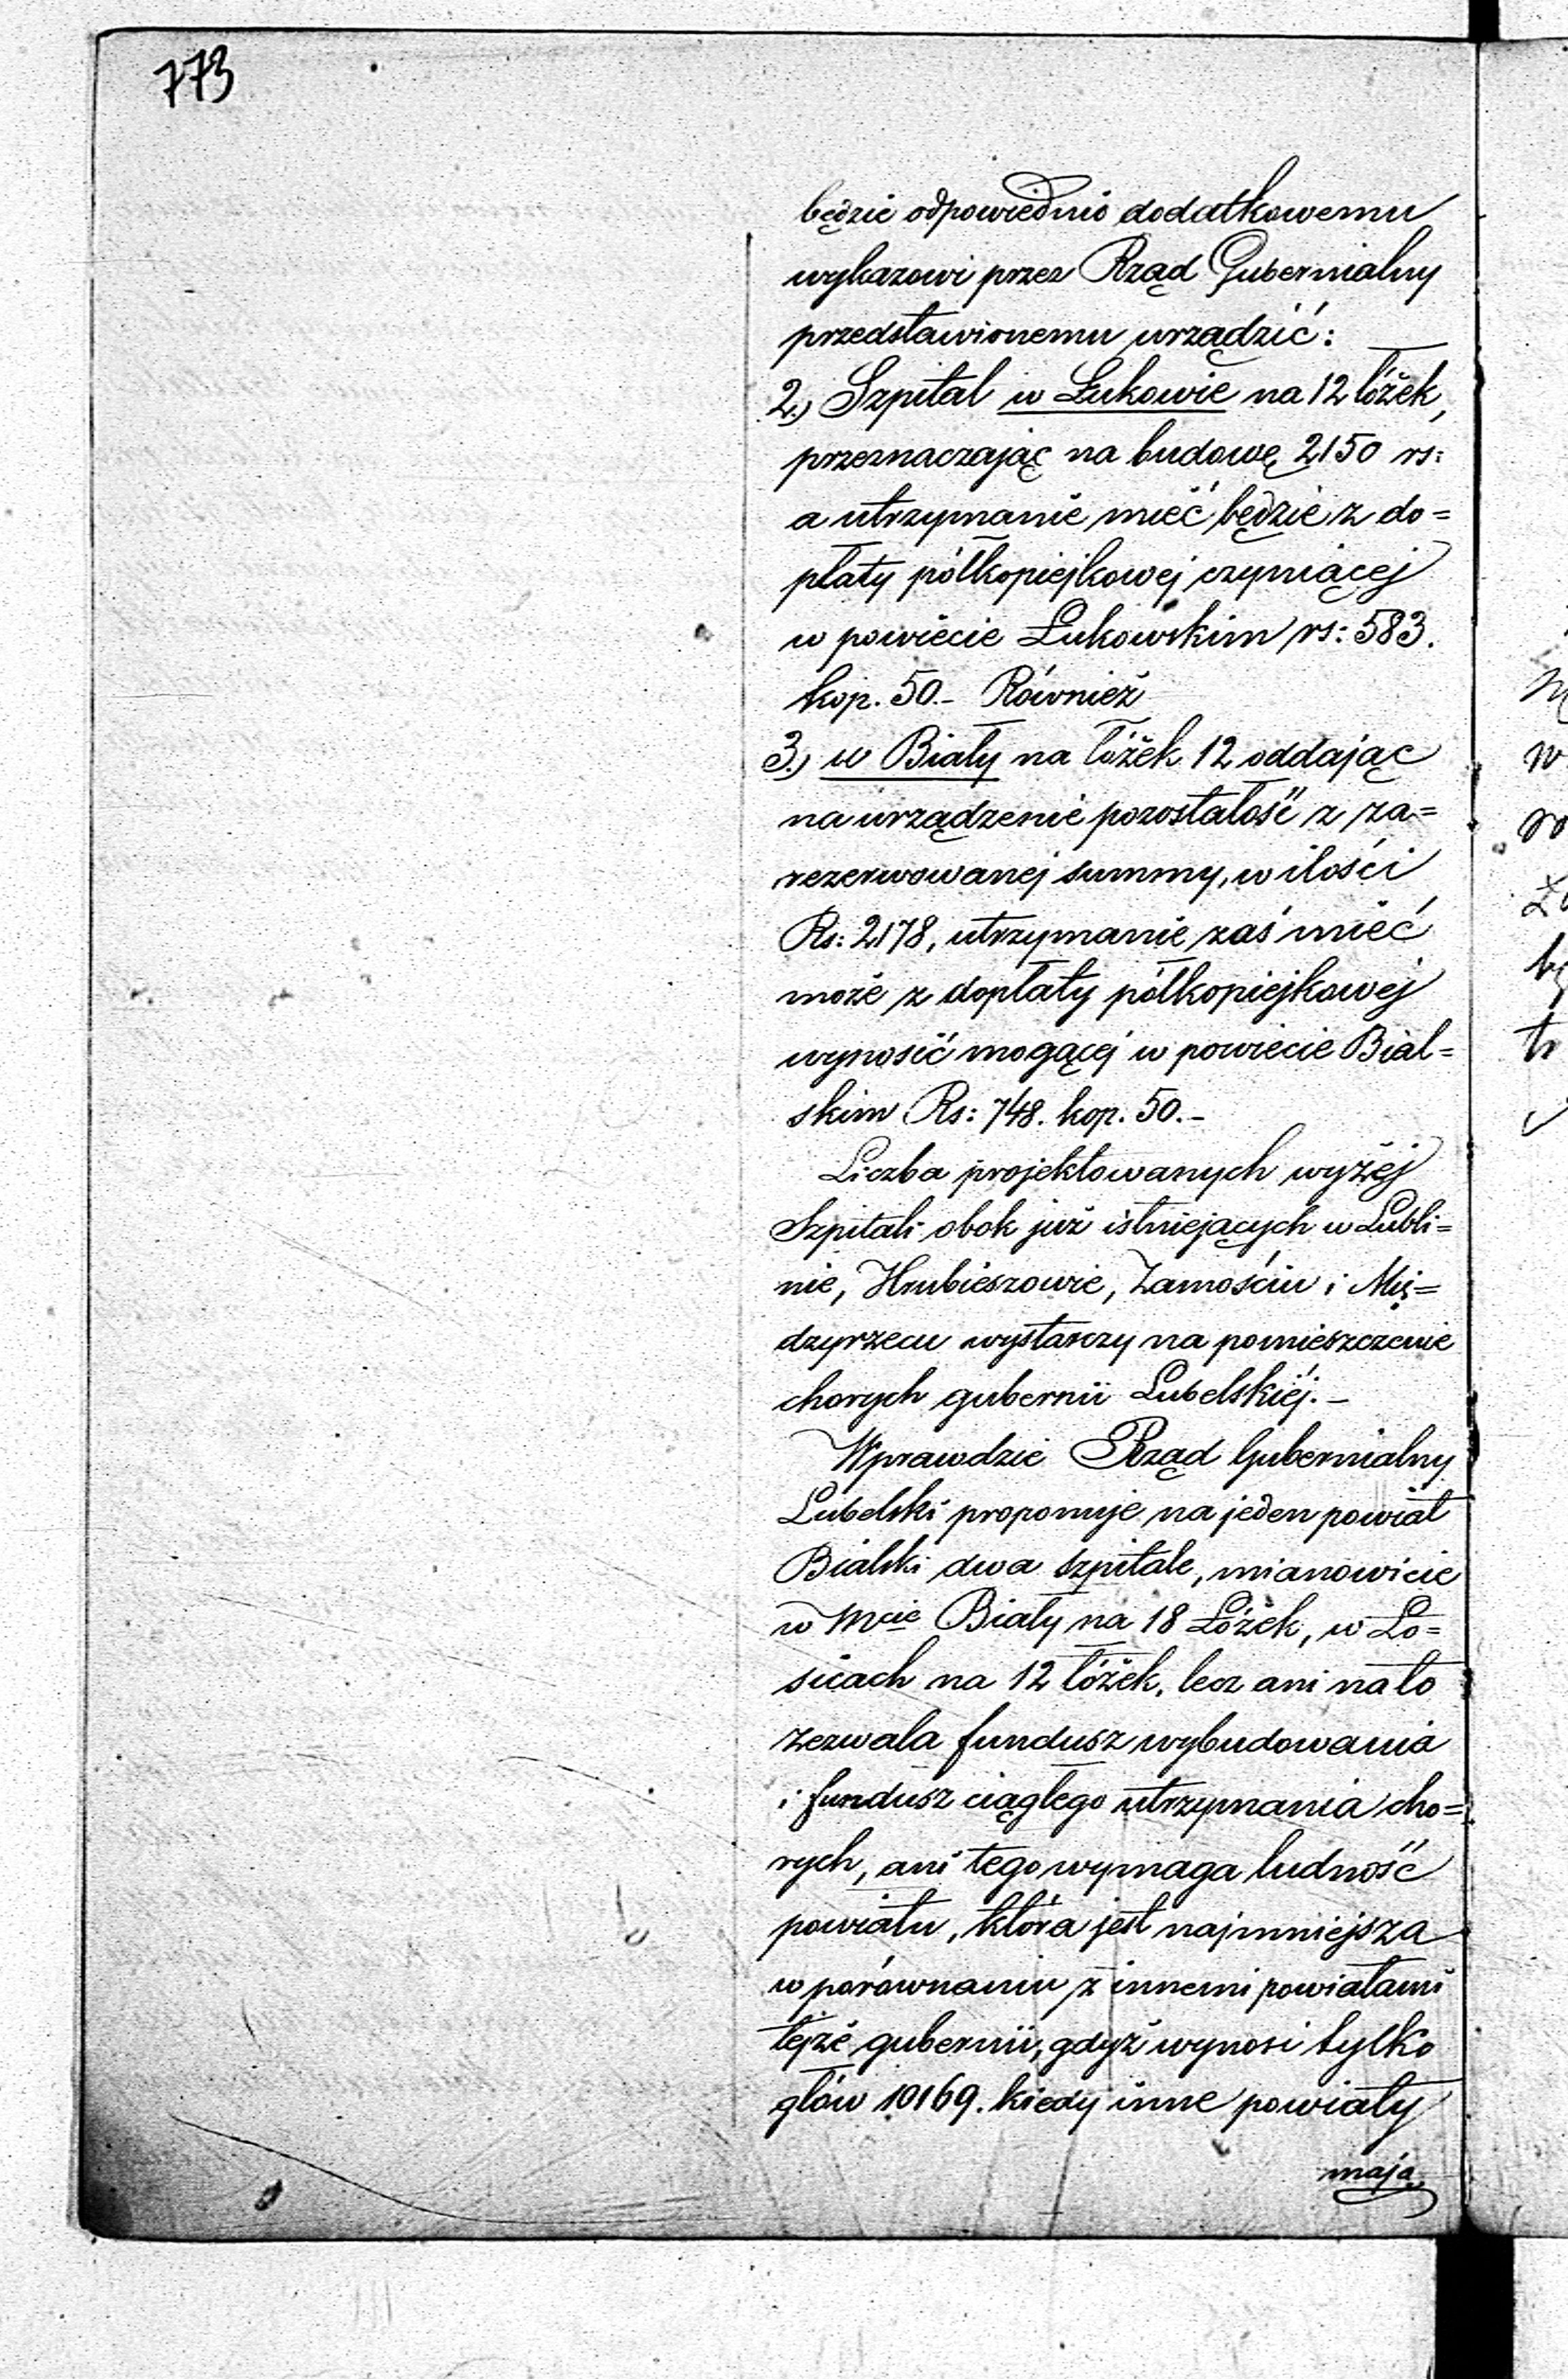 773
będzie odpowiednio dodatkowemu
wykazowi przez Rząd Gubernialny
przedstawionemu urządzić:
2.) Szpital w Łukowie na 12 łóżek,
przeznaczając na budowę 2150 rs:
a utrzymanie mieć będzie z do=
płaty półkopiejkowej czyniącej
w powiecie Łukowskim rs: 583.
kop. 50.- Również
3.) w Biały na łóżek 12 oddając
na urządzenie pozostałość z za=
rezerwowanej summy, w ilości
Rs: 2178, utrzymanie zaś mieć
może z dopłaty półkopiejkowej
wynosić mogącej w powiecie Bial=
skim Rs: 748. kop. 50.-
Liczba projektowanych wyżej
Szpitali obok już istniejących w Lubli=
nie, Hrubieszowie, Zamościu i Mię=
dzyrzecu wystarczy na pomieszczenie
chorych gubernii Lubelskiéj.-
Wprawdzie Rząd Gubernialny
Lubelski proponuje na jeden powiat
Bialski dwa szpitale, mianowicie
w Mcie Biały na 18 Łóżek, w Ło=
sicach na 12 łóżek, lecz ani na to
zezwala fundusz wybudowania
i fundusz ciągłego utrzymania cho=
rych, ani tego wymaga ludność
powiatu, która jest najmniejsza
w porównaniu z innemi powiatami
tejże gubernii, gdyż wynosi tylko
głów 10169. kiedy inne powiaty
mają